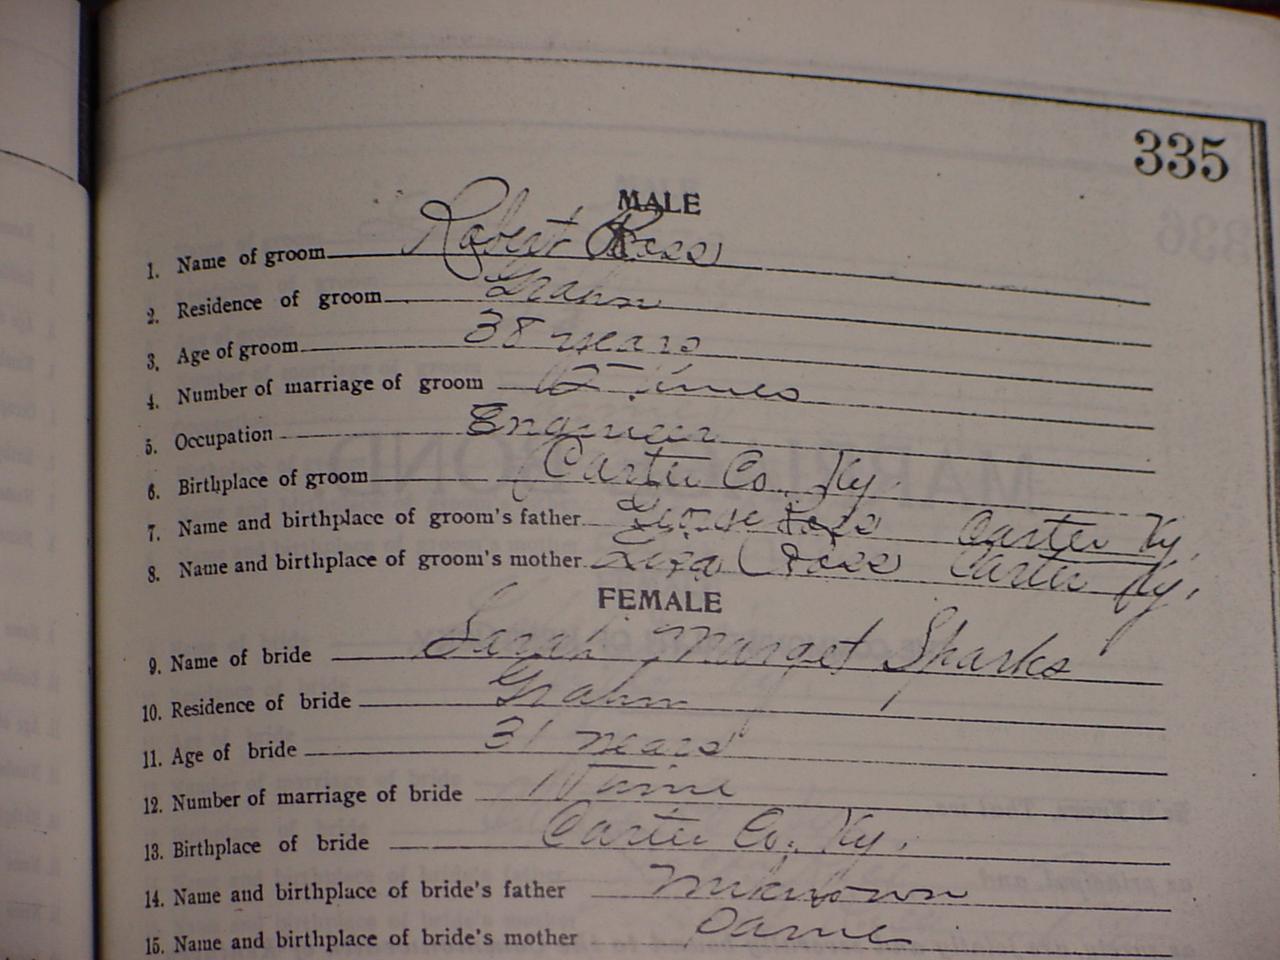 335
MALE
1. Name of groom Robert Ross
2. Residence of groom Grahn
3. Age of groom 38 years
4. Number of marriage of groom 2 Times
5. Occupation Engineer
6. Birthplace of groom Carter Co. Ky.
7. Name and birthplace of groom's father George Ross Carter Ky.
8. Name and birthplace of groom's mother Liza Ross Carter Ky.
FEMALE
9. Name of bride Sarah Marget Sparks
10. Residence of bride Grahn
11. Age of bride 31 years
12. Number of marriage of bride 1 Time
13. Birthplace of bride Carter Co. Ky.
14. Name and birthplace of bride's father Unknown
15. Name and birthplace of bride's mother Same